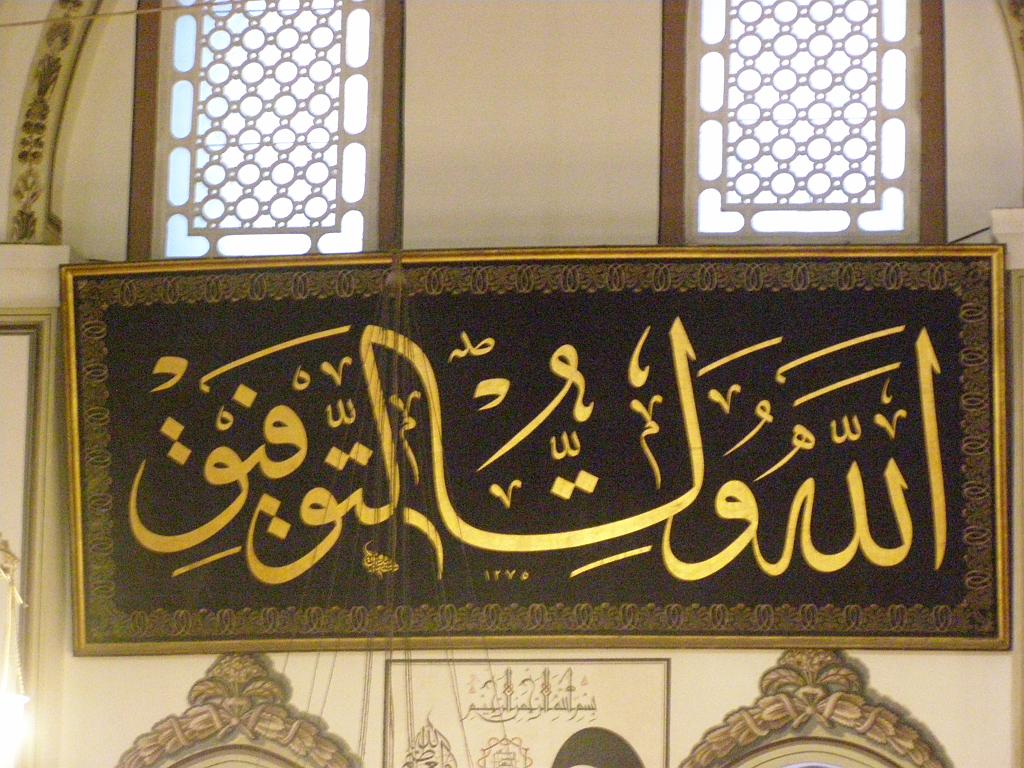 اللّٰهُ وَلِيُّ التَّوْفِيقِ
١٢٧٥
بسم الله الرحمن الرحيم